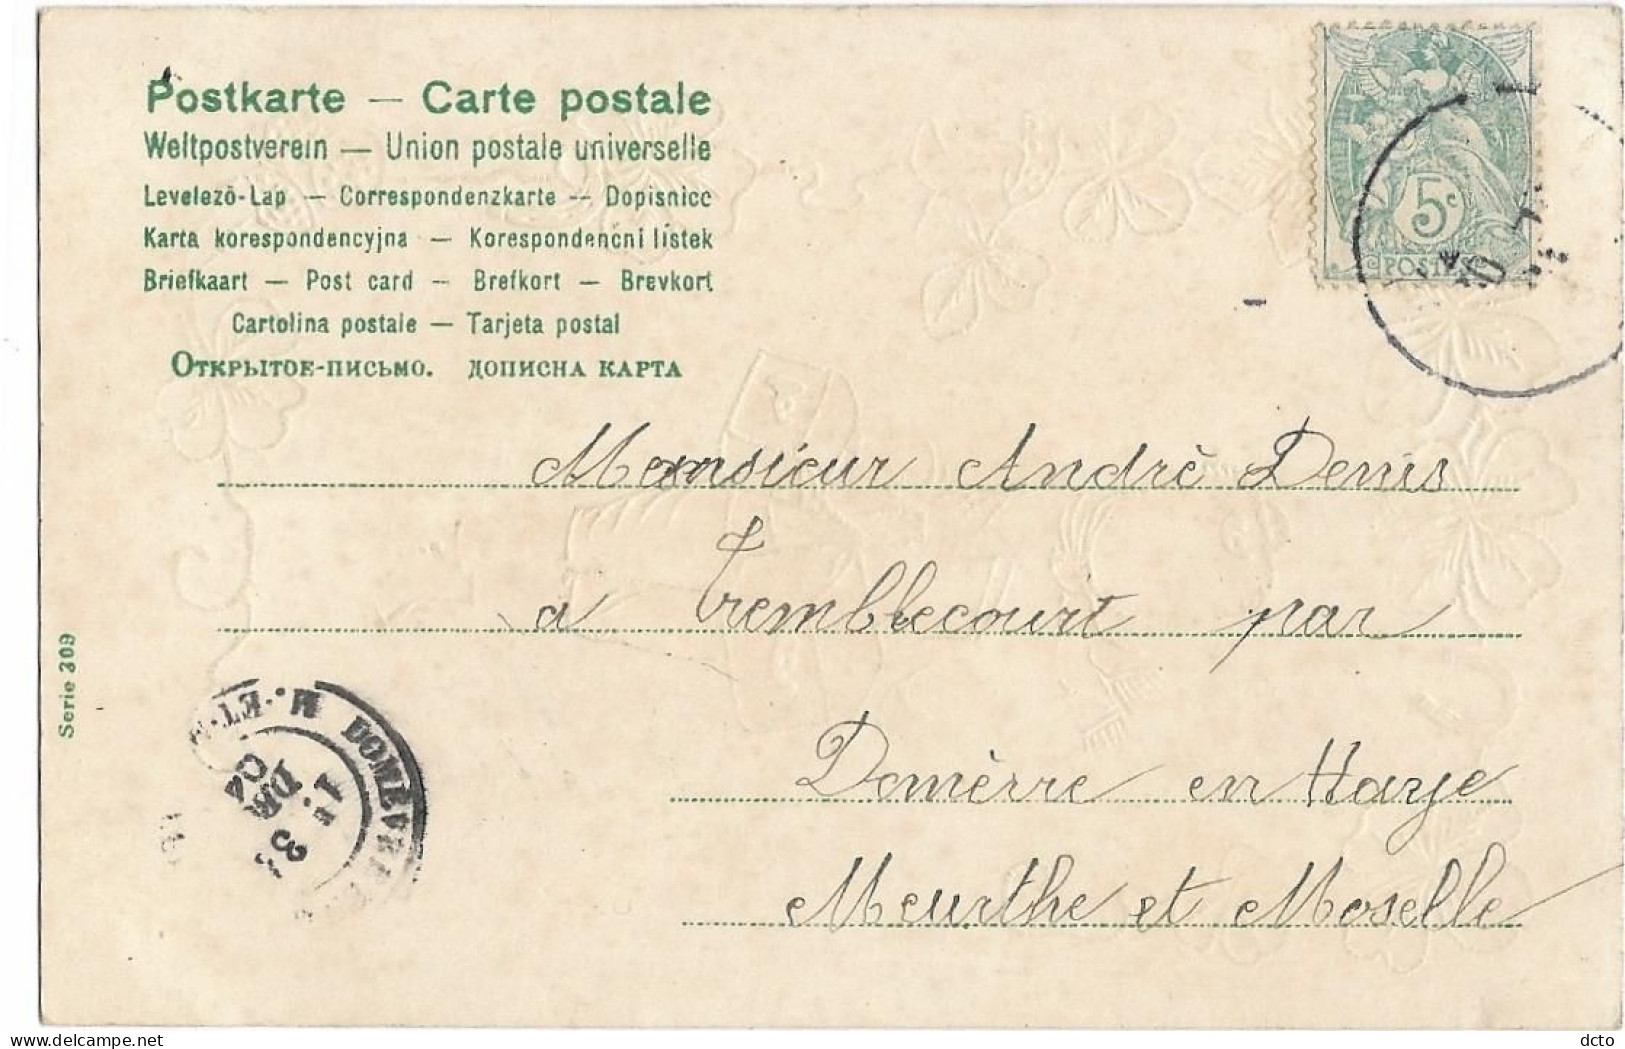 Postkarte — Carte postale
Weltpostverein — Union postale universelle
Levelező-Lap — Correspondenzkarte -- Dopisnicc
Karta korespondencyjna — Korespondenční lístek
Briefkaart — Post card — Brefkort — Brevkort
Cartolina postale — Tarjeta postal
Открытое-письмо. дописна карта
5c
POSTES
Monsieur Andrè Denis
a Tremblecourt par
Domèrre en Haye
Meurthe et Moselle
Serie 309
DOMÈVRE
M.-ET-M
11
23
DE
04
dcto